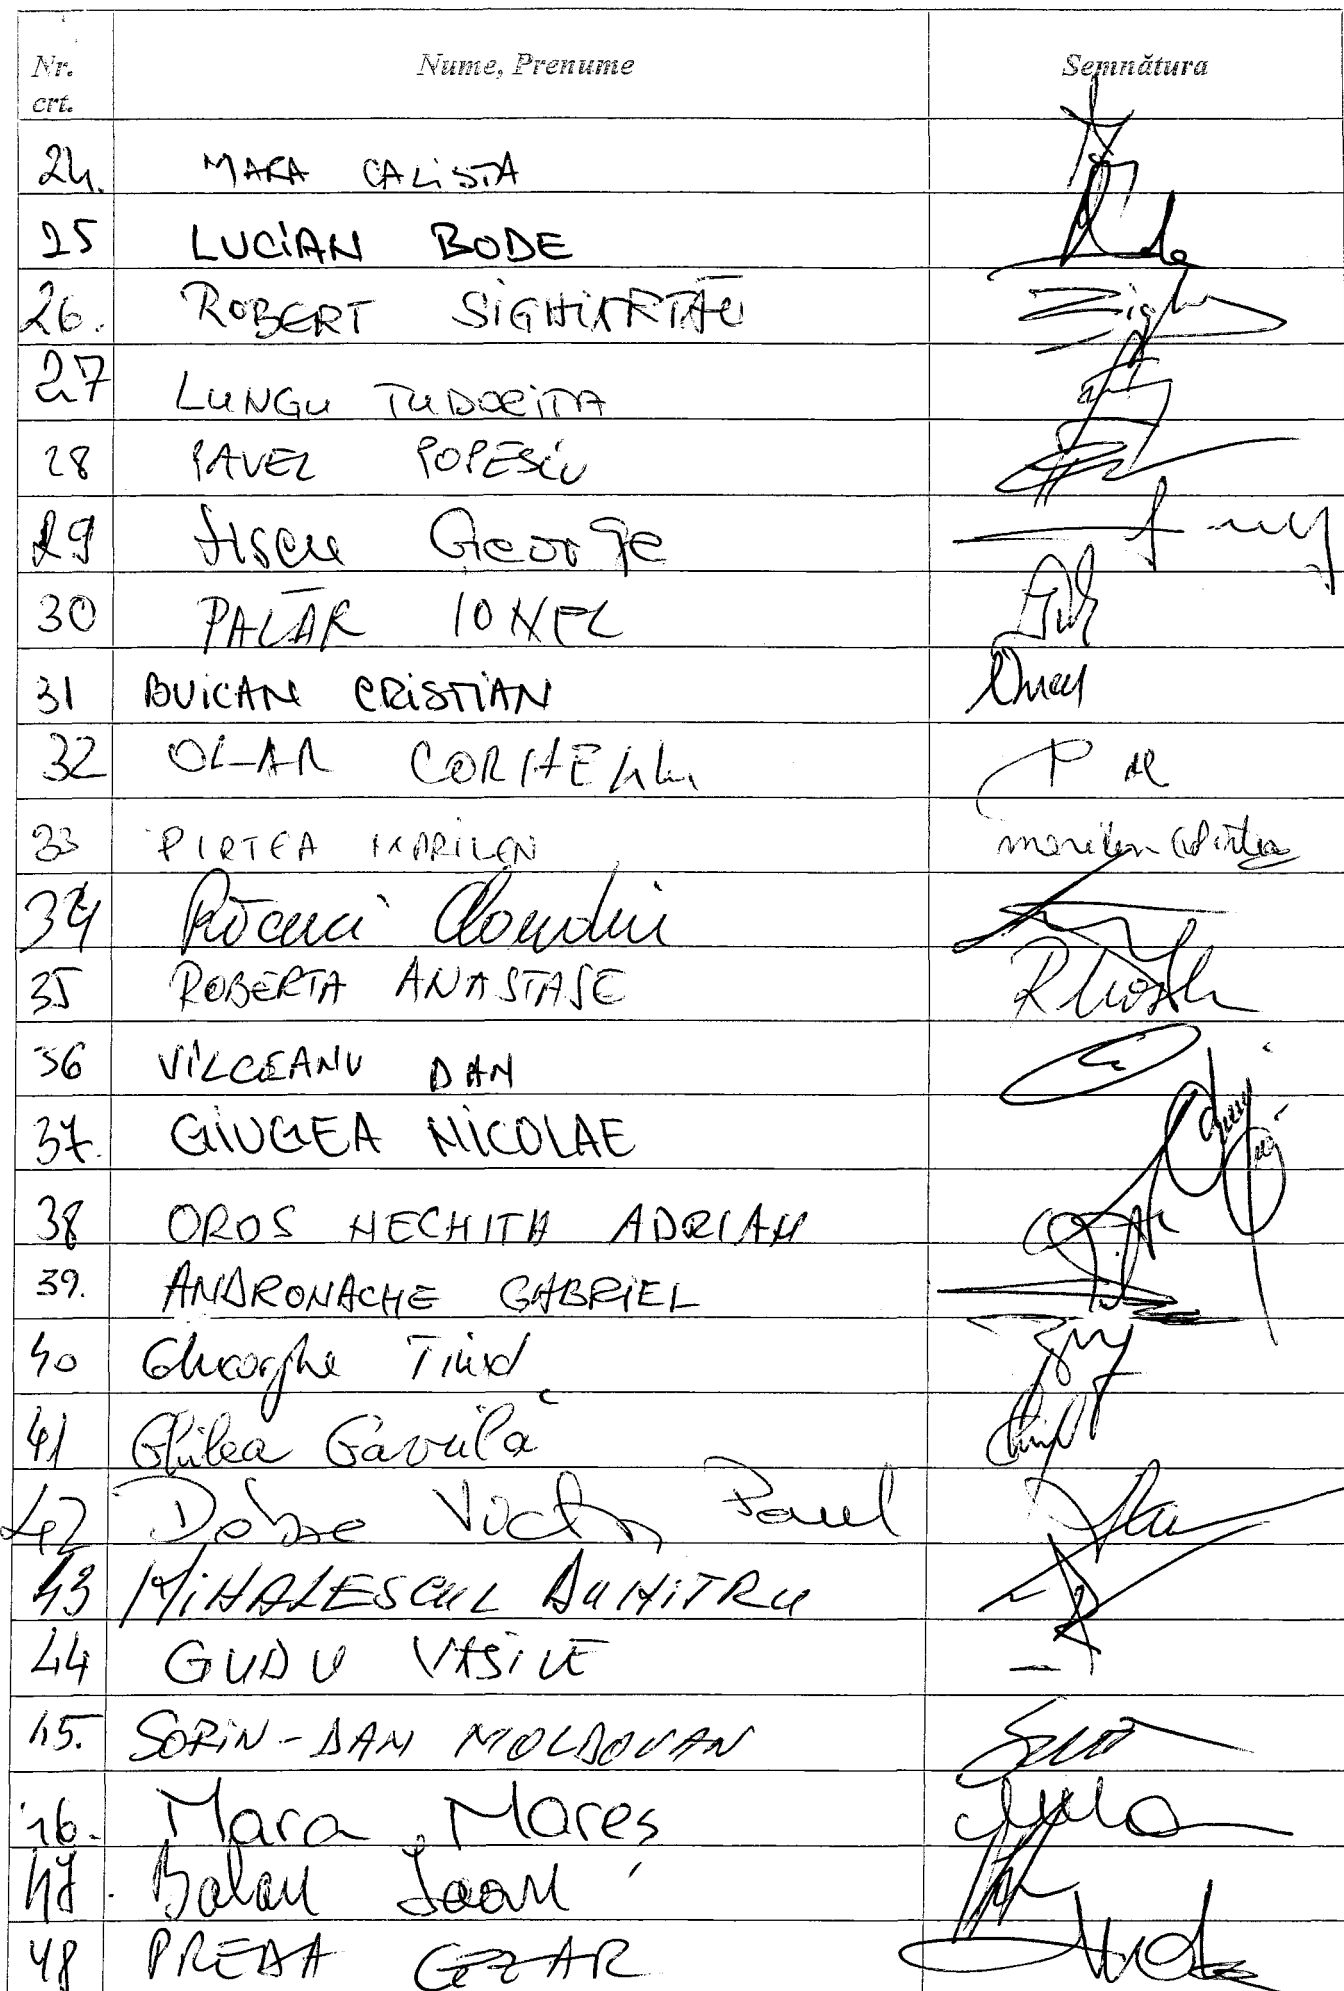 Nr. crt. Nume, Prenume Semnătura
24. MARA CALISTA
25 LUCIAN BODE
26. ROBERT SIGHIARTĂU
27 LUNGU TUDORIȚA
28 PAVEL POPESCU
29 Șișcu George
30 PALĂR IONEL
31 BUICAN CRISTIAN
32 OLAR CORNELIU
33 PIRTEA MARILEN marilen Pirtea
34 Răcuci Claudiu
35 ROBERTA ANASTASE
36 VÎLCEANU DAN
37. GIUGEA NICOLAE
38 OROS NECHITA ADRIAN
39. ANDRONACHE GABRIEL
40 Gheorghe Tinel
41 Ghilea Găvrilă
42 Dobre Victor Paul
43 MIHALESCUL DUMITRU
44 GUDU VASILE
45. SORIN-DAN MOLDOVAN
46. Mara Mareș
47. Balan Ioan
48 PREDA CEZAR